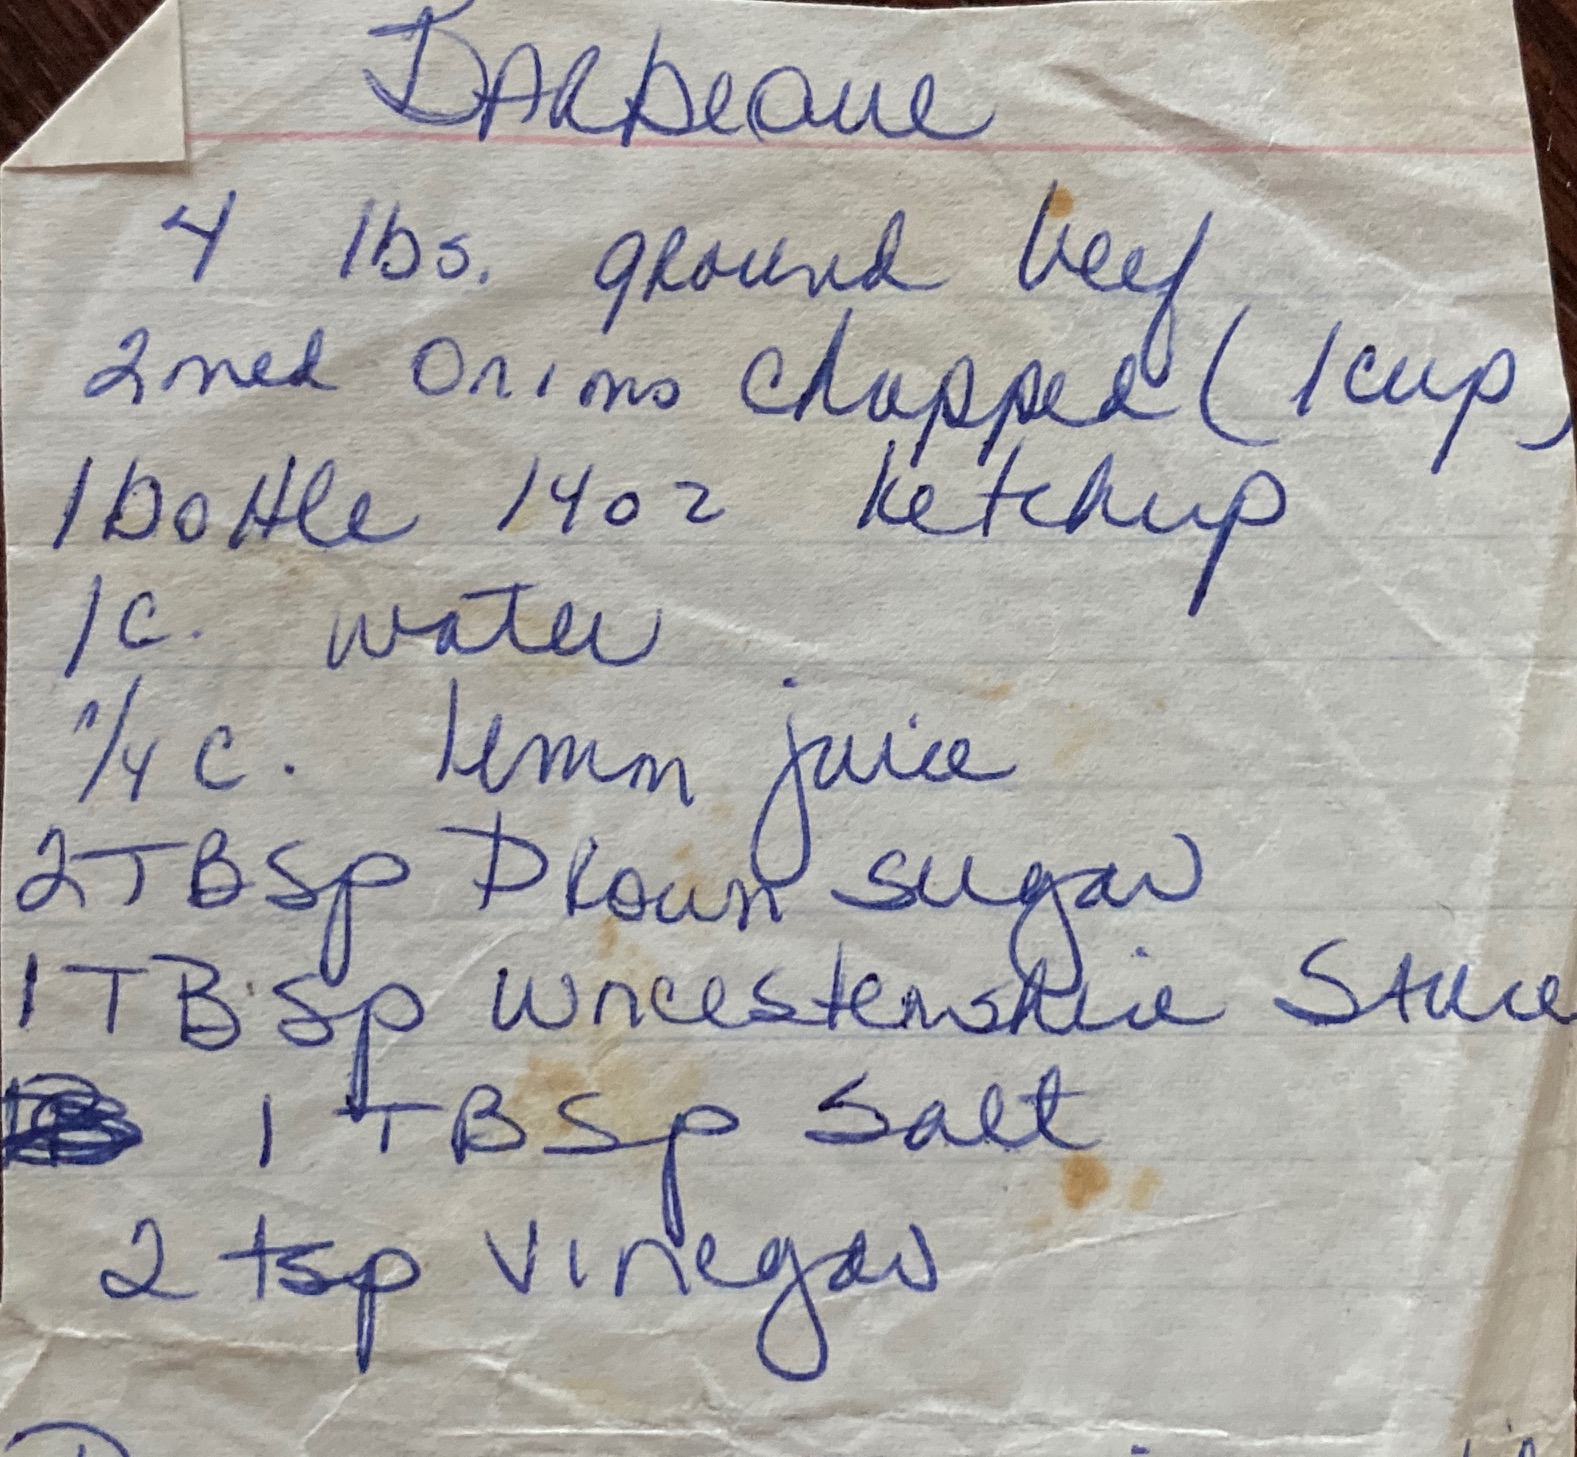 BARbeque
4 lbs. ground beef
2 med Onions chopped (1 cup)
1 bottle 14oz ketchup
1 c. water
1/4 c. lemon juice
2 TBSp Brown sugar
1 TBSp Worcestershire Sauce
1 TBSp Salt
2 tsp vinegar